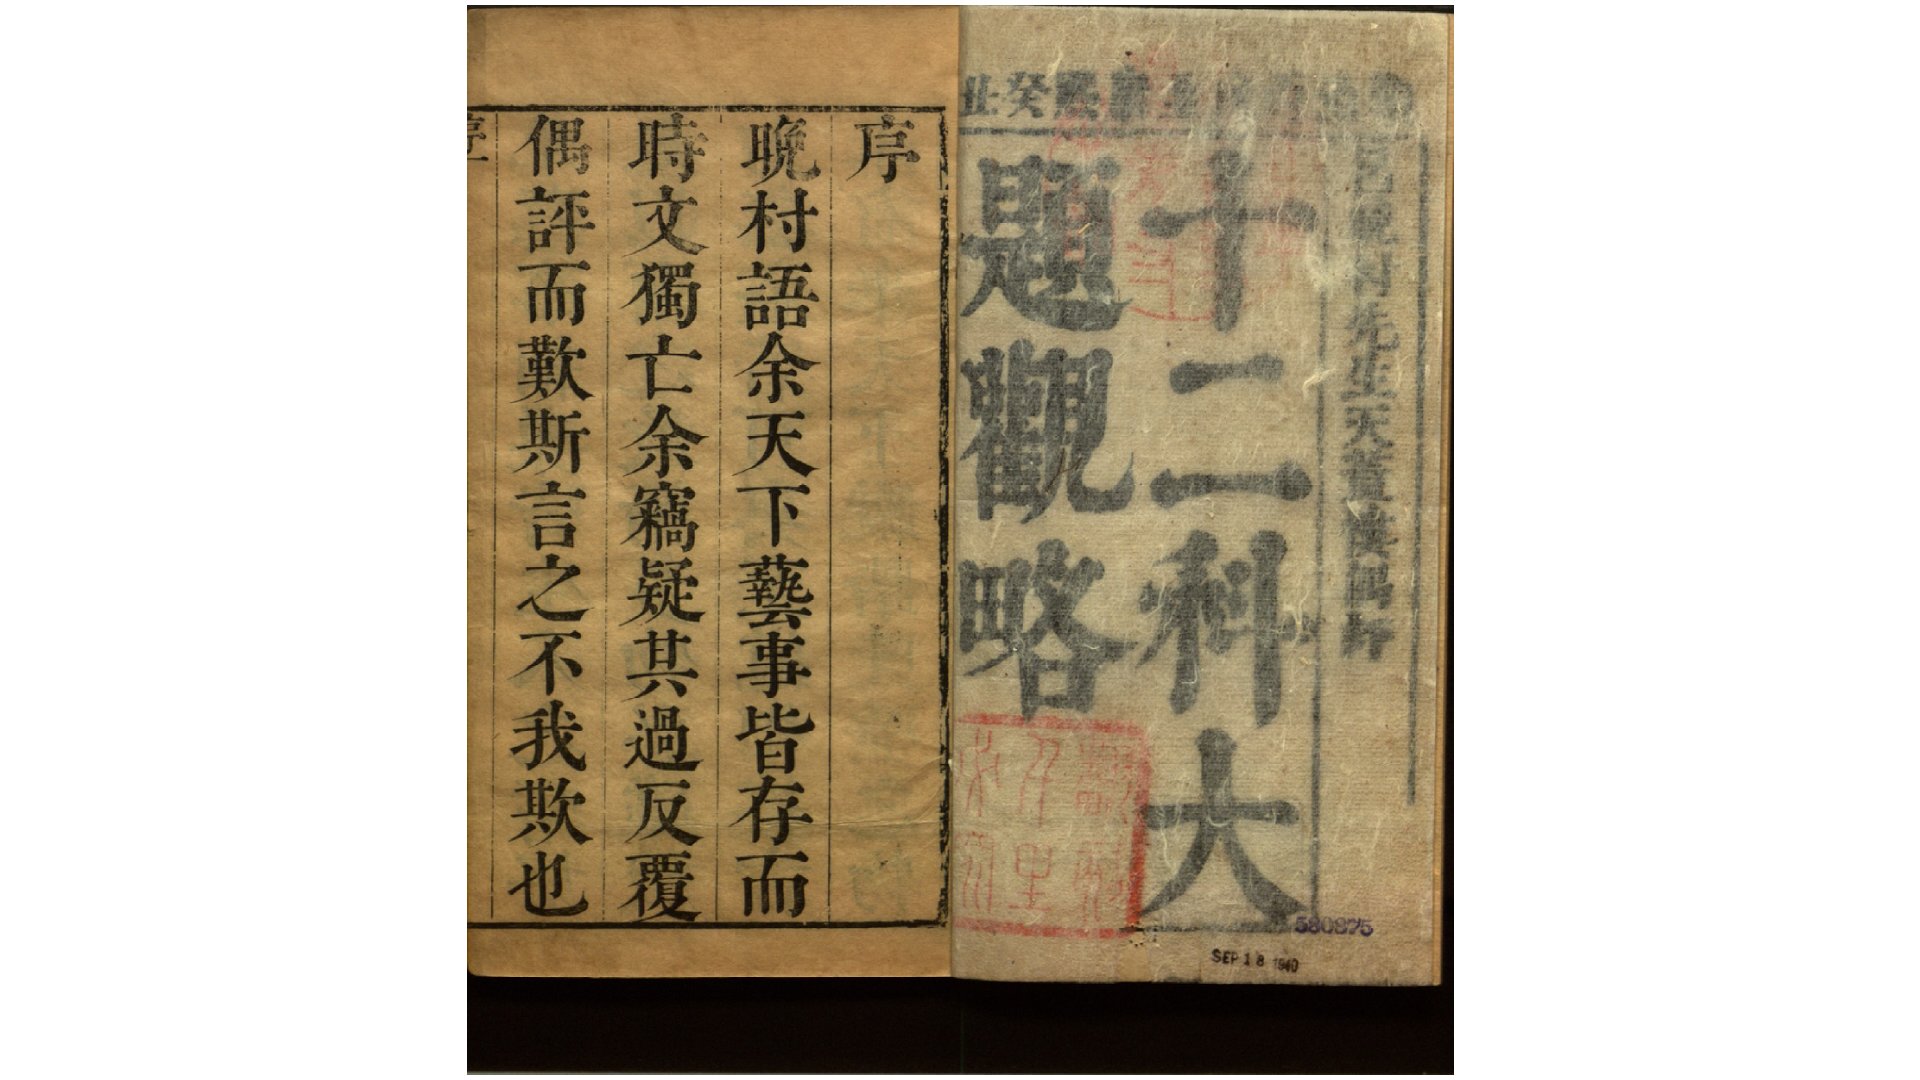 至康熙癸丑
呂晚村先生天蓋樓偶評
十二科大
題觀略
580875
SEP 18 1940
序
晚村語余天下藝事皆存而
時文獨亡余竊疑其過反覆
偶評而歎斯言之不我欺也
序